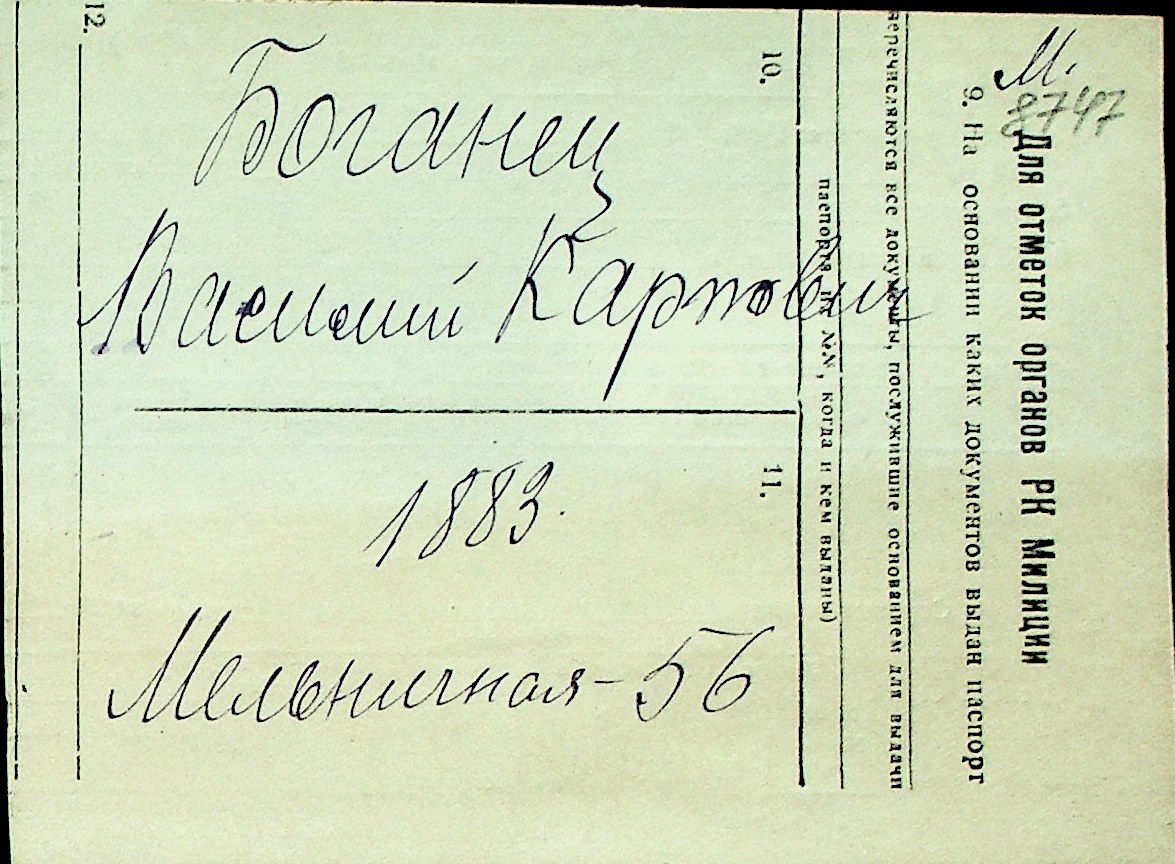 Боганец
Василий Карпович
1883.
Мельничная - 56
М.
8747
Для отметок органов РК Милиции
9. На основании каких документов выдан паспорт
перечисляются все документы, послужившие основанием для выдачи
паспорта, их №№, когда и кем выданы)
10.
11.
12.